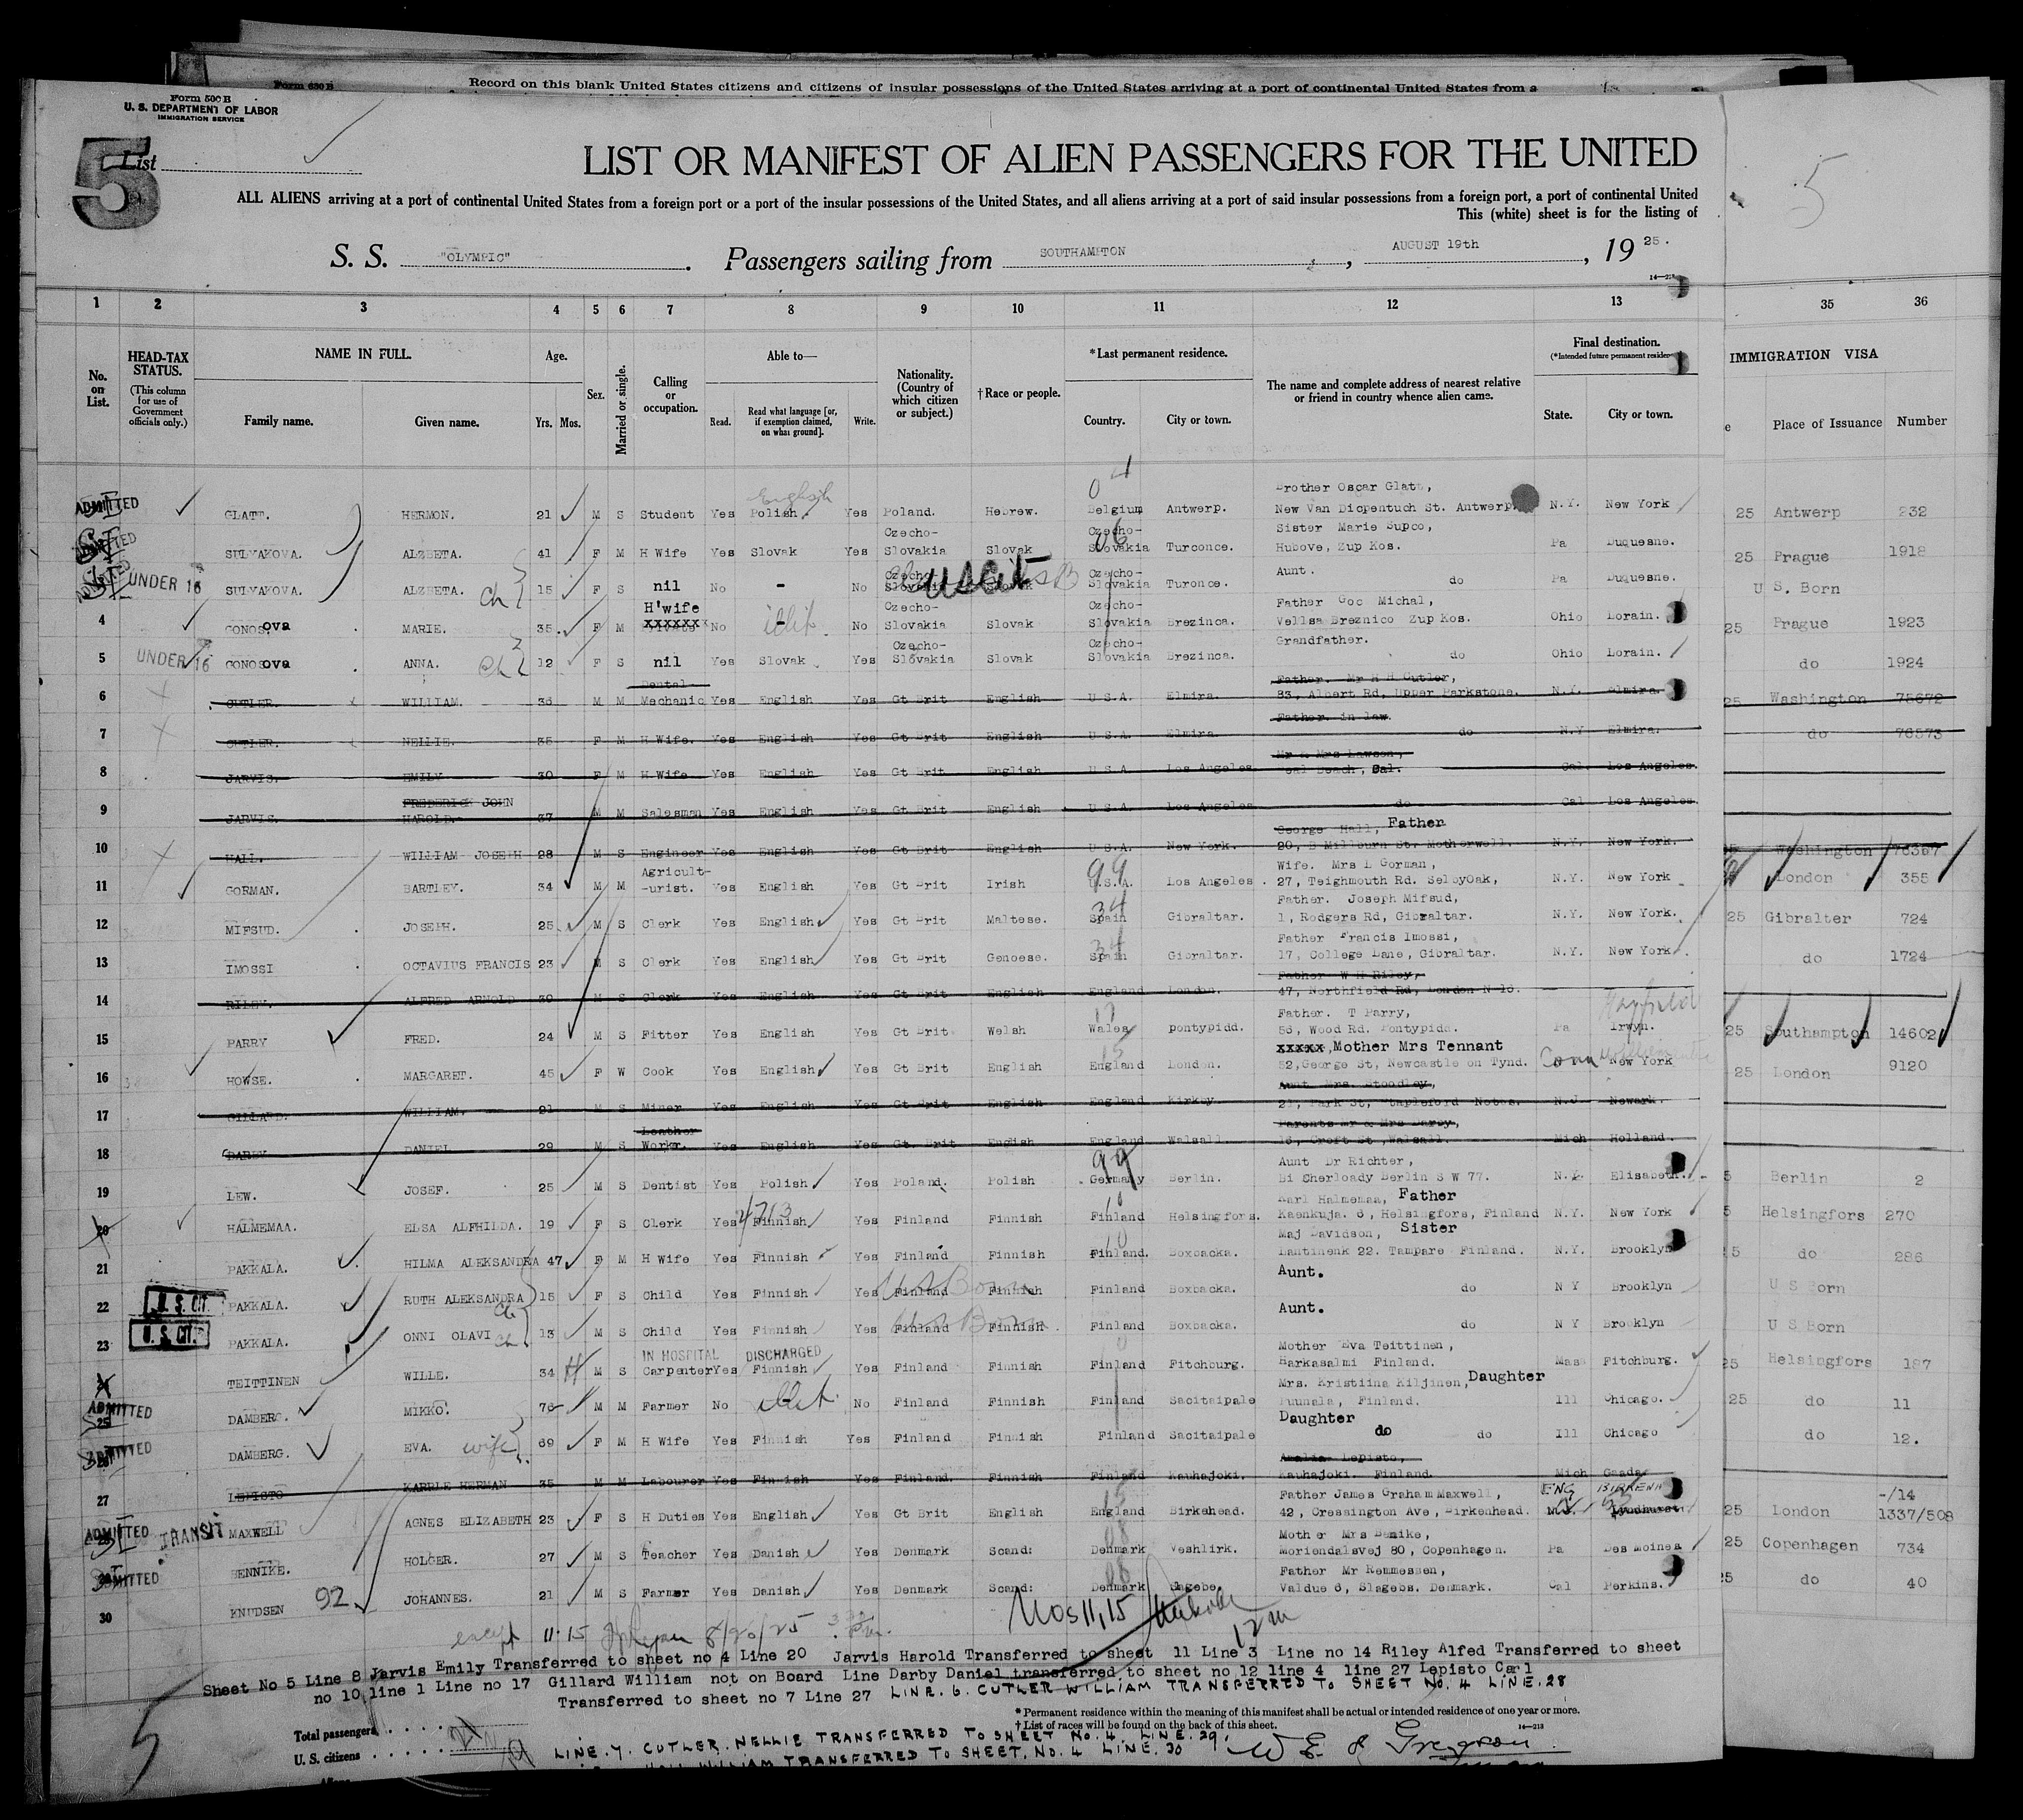 Form 630 B
Record on this blank United States citizens and citizens of insular possessions of the United States arriving at a port of continental United States from a
Form 500 B
U. S. DEPARTMENT OF LABOR
IMMIGRATION SERVICE
5
List
LIST OR MANIFEST OF ALIEN PASSENGERS FOR THE UNITED
5
ALL ALIENS arriving at a port of continental United States from a foreign port or a port of the insular possessions of the United States, and all aliens arriving at a port of said insular possessions from a foreign port, a port of continental United
This (white) sheet is for the listing of
S. S. "OLYMPIC" . Passengers sailing from SOUTHAMPTON , AUGUST 19th , 19 25.
1 2 3 4 5 6 7 8 9 10 11 12 13 35 36
No. on List. HEAD-TAX STATUS. (This column for use of Government officials only.) NAME IN FULL. Family name. Given name. Age. Yrs. Mos. Sex. Married or single. Calling or occupation. Able to— Read. Read what language [or, if exemption claimed, on what ground]. Write. Nationality. (Country of which citizen or subject.) † Race or people. * Last permanent residence. Country. City or town. The name and complete address of nearest relative or friend in country whence alien came. Final destination. (*Intended future permanent residence State. City or town. IMMIGRATION VISA Place of Issuance Number
English
Brother Oscar Glatt,
ADMITTED GLATT. HERMON. 21 M S Student Yes Polish. Yes Poland. Hebrew. Belgium Antwerp. New Van Diepentuch St. Antwerp. N.Y. New York 25 Antwerp 232
Czecho- Czecho- Sister Marie Supco,
ADMITTED SULYAKOVA. ALZBETA. 41 F M H Wife Yes Slovak Yes Slovakia Slovak Slovakia Turconce. Hubove, Zup Kos. Pa Duquesne. 25 Prague 1918
Czecho- Czecho- Aunt.
ADMITTED UNDER 16 SULYAKOVA. ALZBETA. ch 15 F S nil No - No Slovakia Slovak Slovakia Turonce. do Pa Duquesne. U S. Born
H'wife Czecho- Czecho- Father Goc Michal,
4 GONOSova MARIE. 35. F M xxxxxxx No - illit. No Slovakia Slovak Slovakia Brezinca. Vellsa Breznico Zup Kos. Ohio Lorain. 25 Prague 1923
Czecho- Czecho- Grandfather.
5 UNDER 16 GONOSova ANNA. ch 12 F S nil Yes Slovak Yes Slovakia Slovak Slovakia Brezinca. do Ohio Lorain. do 1924
Dental Father. Mr H H Cutler,
6 CUTLER. WILLIAM. 36 M M Mechanic Yes English Yes Gt Brit English U.S.A. Elmira. 83, Albert Rd, Upper Parkstone. N.Y. Elmira. 25 Washington 75672
Father. in law.
7 CUTLER. NELLIE. 35 F M H Wife. Yes English Yes Gt Brit English U S.A. Elmira. do N.Y Elmira. do 76573
Mr & Mrs Lawson,
8 JARVIS. EMILY 30 F M H Wife Yes English Yes Gt Brit English U.S.A. Los Angeles. Seal Beach, Cal. Cal. Los Angeles.
FREDERICK JOHN
9 JARVIS. HAROLD. 37 M M Salesman Yes English Yes Gt Brit English U.S.A. Los Angeles do Cal Los Angeles.
George Hall, Father
10 HALL. WILLIAM JOSEPH 28 M S Engineer Yes English Yes Gt Brit English U.S.A. New York. 20, B Millburn St. Motherwell. N.Y. New York. Washington 76357
Agricult- 99 Wife. Mrs L Gorman,
11 GORMAN. BARTLEY. 34 M M -urist. Yes English Yes Gt Brit Irish U.S.A. Los Angeles. 27, Teighmouth Rd. SelbyOak, N.Y. New York London 355
34 Father. Joseph Mifsud,
12 MIFSUD. JOSEPH. 25 M S Clerk Yes English Yes Gt Brit Maltese. Spain Gibraltar. 1, Rodgers Rd, Gibraltar. N.Y. New York. 25 Gibralter 724
34 Father Francis Imossi,
13 IMOSSI OCTAVIUS FRANCIS 23 M S Clerk Yes English Yes Gt Brit Genoese. Spain Gibraltar. 17, College Lane, Gibraltar. N.Y. New York do 1724
Father W H Riley,
14 RILEY. ALFRED ARNOLD 30 M S Clerk Yes English Yes Gt Brit English England London. 47, Northfield Rd, London N 16.
Father. T Parry,
15 PARRY FRED. 24 M S Fitter Yes English Yes Gt Brit Welsh Wales pontypidd. 56, Wood Rd. Pontypidd. Pa Irwyn. 25 Southampton 14602
xxxxx, Mother Mrs Tennant
16 HOWSE. MARGARET. 45 F W Cook Yes English Yes Gt Brit English England London. 52,George St, Newcastle on Tynd. Conn New York 25 London 9120
Aunt Mrs. Stoodley,
17 GILLARD. WILLIAM. 21 M S Miner Yes English Yes Gt Brit English England Kirkby. 21, Park St, Stapleford Notts. N.J. Newark.
Leather Parents Mr & Mrs Darby,
18 DARBY DANIEL 29 M S Workr. Yes English Yes Gt. Brit English England Walsall 16, Croft St, Walsall. Mich Holland.
99 Aunt Dr Richter,
19 LEW. JOSEF. 25 M S Dentist Yes Polish Yes Poland. Polish Germany Berlin. Bi Cherloady Berlin S W 77. Elisabeth. 5 Berlin 2
Karl Halmemaa, Father
20 HALMEMAA. ELSA ALFHILDA. 19 F S Clerk Yes Finnish Yes Finland Finnish Finland Helsingfors. Kaenkuja. 6, Helsingfors, Finland N.Y. New York 5 Helsingfors 270
Maj Davidson, Sister
21 PAKKALA. HILMA ALEKSANDRA 47 F M H Wife Yes Finnish Yes Finland Finnish Finland. Boxbacka. Lantinenk 22. Tampare Finland. N.Y. Brooklyn 25 do 286
Aunt.
22 U. S. CIT. PAKKALA. RUTH ALEKSANDRA ch 15 F S Child Yes Finnish Yes Finland US Born Finnish Finland Boxbacka. do N Y Brooklyn U S Born
Aunt.
23 U. S. CIT. PAKKALA. ONNI OLAVI ch 13 M S Child Yes Finnish Yes Finland US Born Finnish. Finland Boxbacka. do N Y Brooklyn U S Born
IN HOSPITAL DISCHARGED Mother Eva Teittinen,
24 TEITTINEN WILLE. 34 H M S Carpenter Yes Finnish Yes Finland Finnish Finland Fitchburg. Harkasalmi Finland. Mass Fitchburg. 25 Helsingfors 187
Mrs. Kristiina Kiljinen, Daughter
ADMITTED 25 DAMBERG. MIKKO. 76 M M Farmer No illit. No Finland Finnish Finland Sacitaipale Puunala, Finland. Ill Chicago. 25 do 11
Daughter
ADMITTED DAMBERG. EVA. wife 69 F M H Wife Yes Finnish Yes Finland Finnish Finland Sacitaipale do do Ill Chicago do 12.
Amalia Lepisto,
27 LEPISTO KARRLE HERMAN 35 M M Labourer Yes Finnish Yes Finland. Finnish Finland Kauhajoki. Kauhajoki. Finland. Mich
Father James Graham Maxwell, ENG -/14
ADMITTED TRANSIT MAXWELL AGNES ELIZABETH 23 F S H Duties Yes English Yes Gt Brit English England Birkehead. 42, Cressington Ave, Birkenhead. Lyndhurst 25 London 1337/508
Mother Mrs Bemike,
BENNIKE. HOLGER. 27 M S Teacher Yes Danish Yes Denmark Scand: Denmark Veshlirk. Moriendalsvej 80, Copenhagen. Pa Des Moines 25 Copenhagen 734
Father Mr Remmessen,
ADMITTED 30 KNUDSEN 92 JOHANNES. 21 M S Farmer Yes Danish Yes Denmark Scand: Denmark Slagebe Valdue 6, Slagebs. Denmark. Cal Perkins. 25 do 40
Nos 11, 15
except 11-15 8/26/25 12 m
Sheet No 5 Line 8 Jarvis Emily Transferred to sheet no 4 Line 20 Jarvis Harold Transferred to sheet 11 Line 3 Line no 14 Riley Alfed Transferred to sheet
no 10 line 1 Line no 17 Gillard William not on Board Line Darby Daniel transferred to sheet no 12 line 4 line 27 Lepisto Carl
Transferred to sheet no 7 Line 27 LINE. 6. CUTLER WILLIAM TRANSFERRED TO SHEET NO. 4 LINE. 28
* Permanent residence within the meaning of this manifest shall be actual or intended residence of one year or more.
† List of races will be found on the back of this sheet.
14—213
Total passengers
U. S. citizens
LINE. 7. CUTLER. NELLIE TRANSFERRED TO SHEET NO. 4. LINE. 29.
HALL WILLIAM TRANSFERRED TO SHEET. NO. 4 LINE. 30
Aliens
5